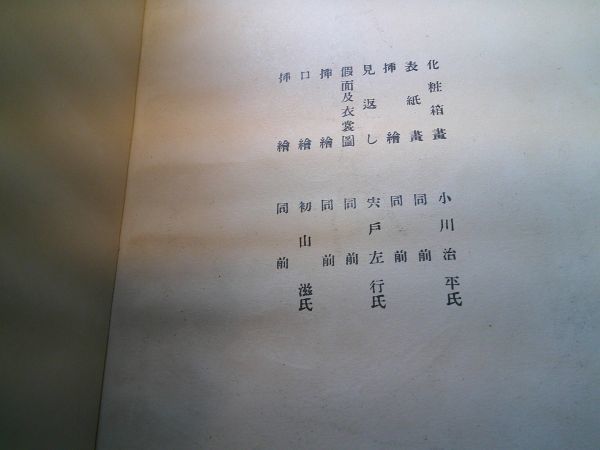 化粧箱畫 小川治平氏
表紙畫 同前
挿繪 同前
見返し 宍戶左行氏
假面及衣裳圖 同前
挿繪 同前
口繪 初山滋氏
挿繪 同前